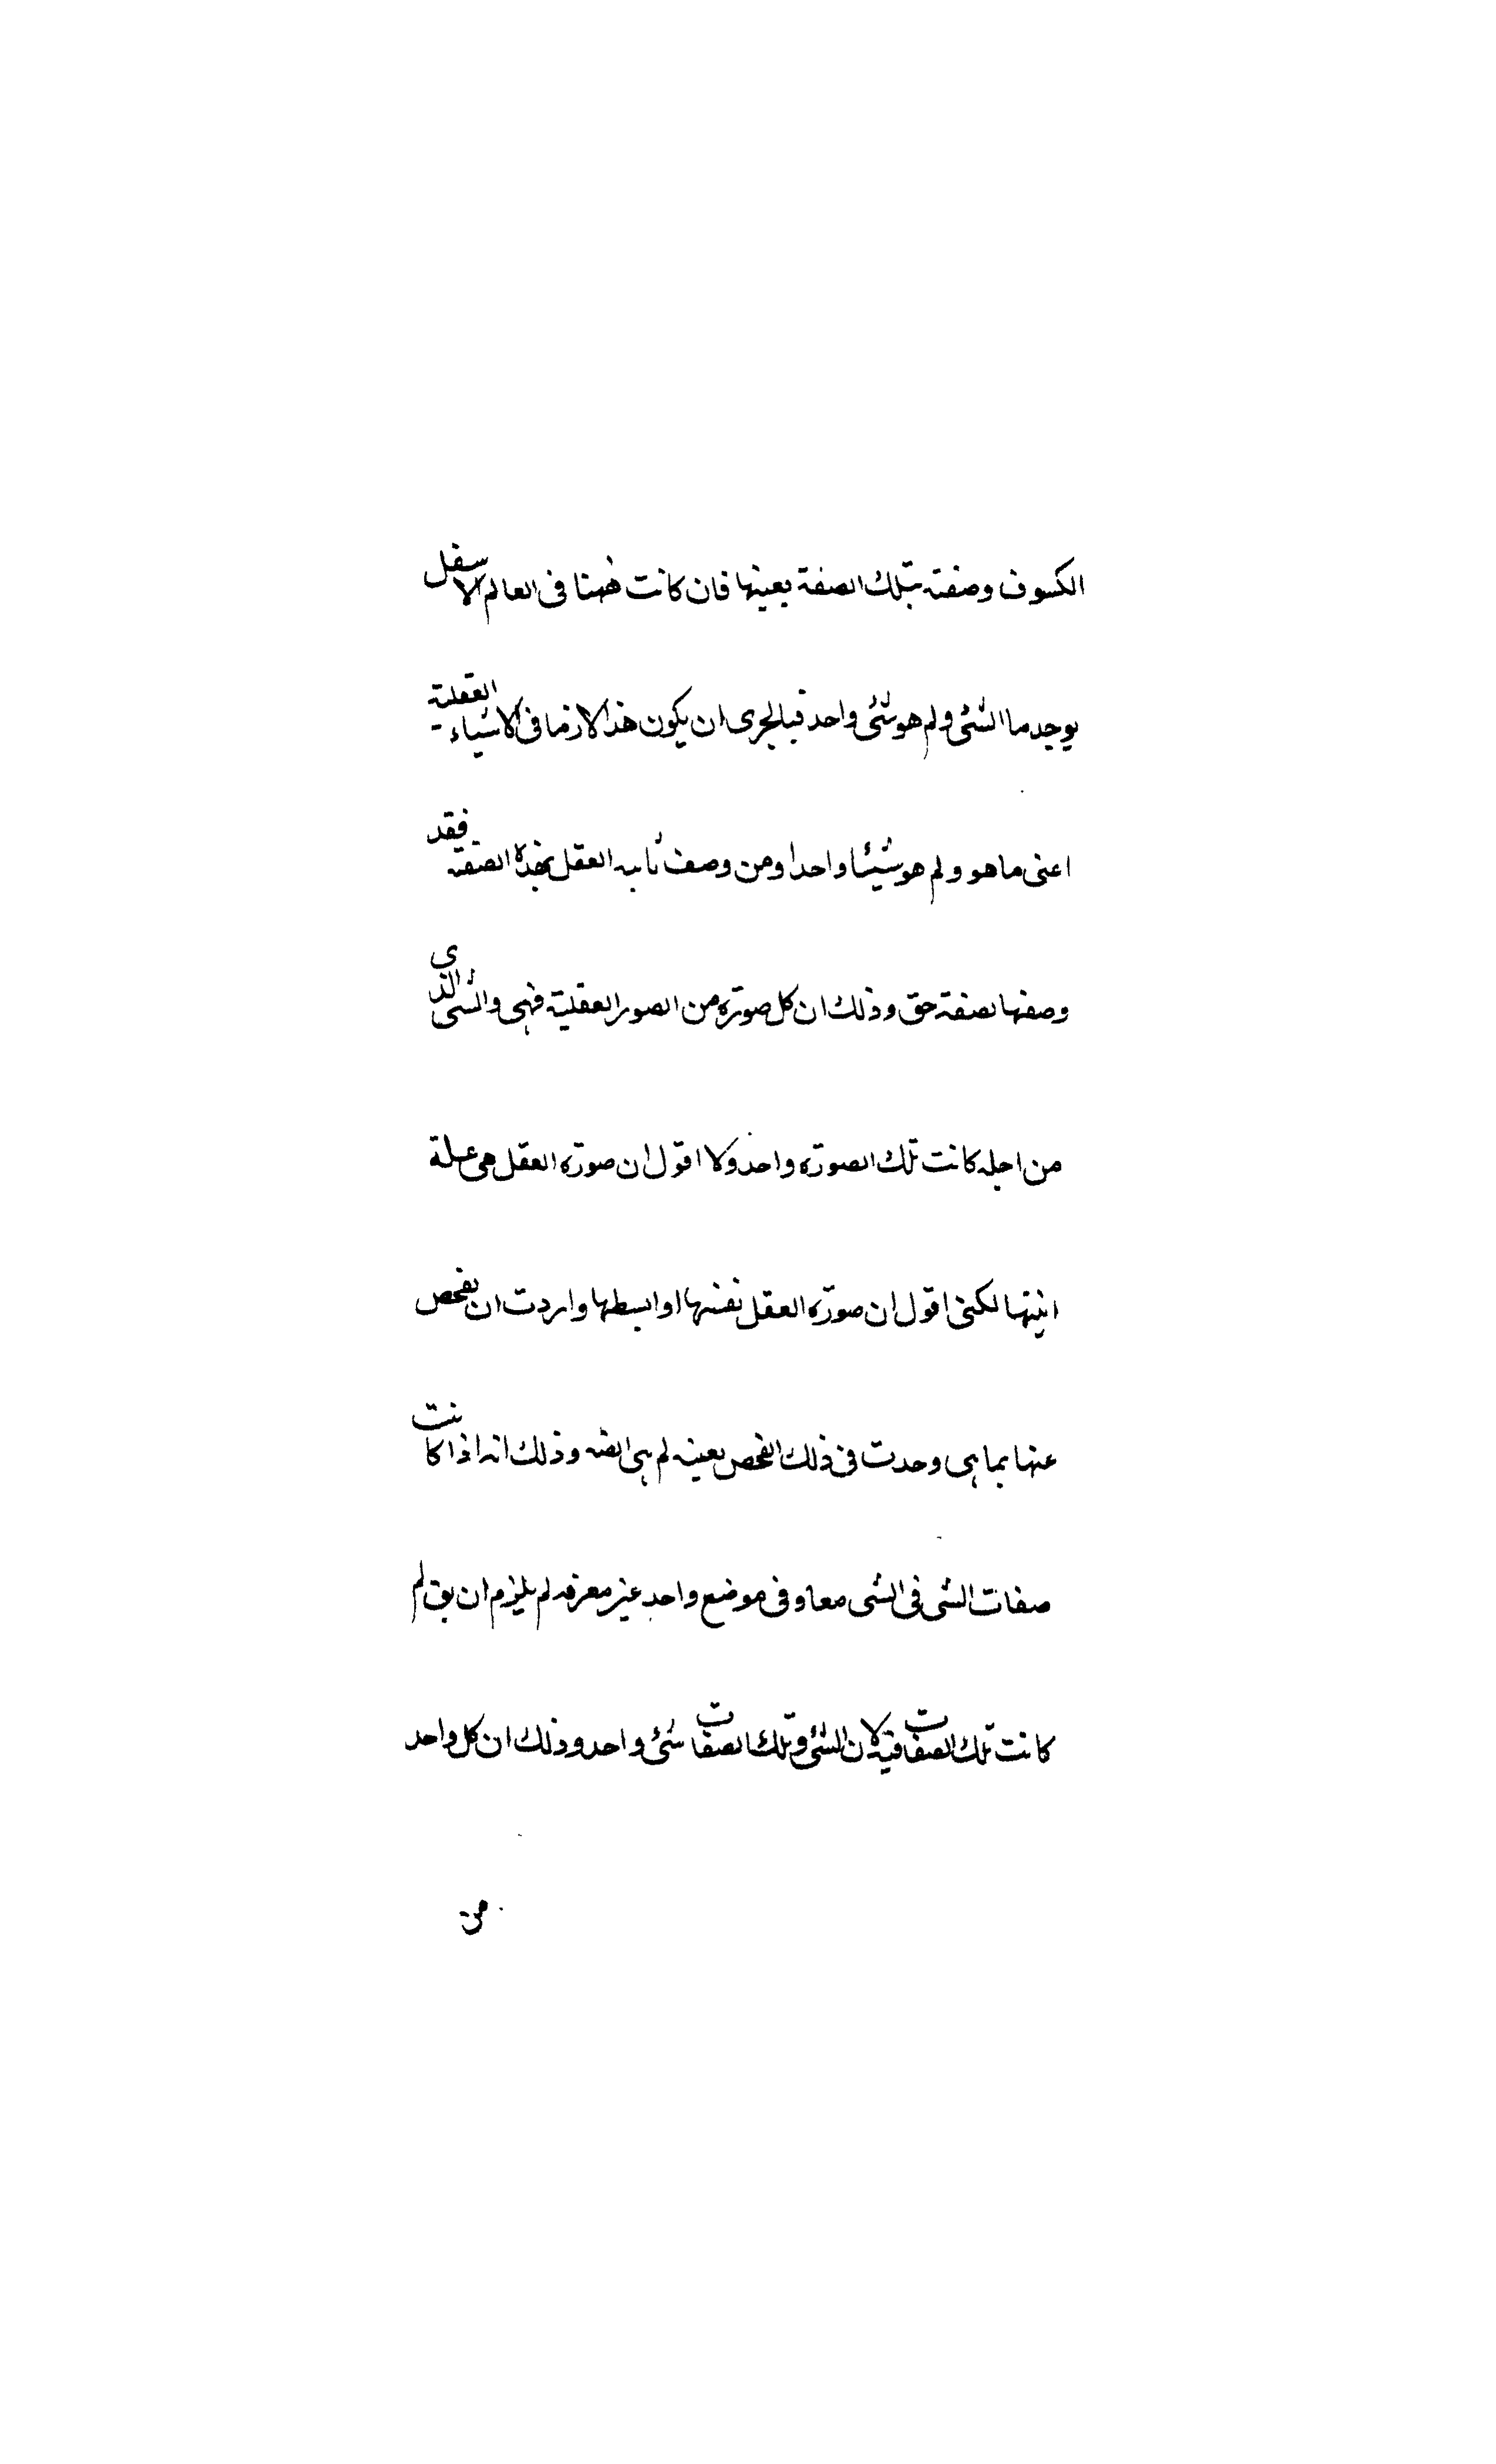 الكسوف وصفته بتلك الصفة بعينها فان كانت ههنا فى العالم الاسفل
يوجد ما الشئ ولم هو شئ واحد فبالحرى ان يكون هذا لازما فى الاشياء العقلية
اعنى ما هو ولم هو شيئا واحدا ومن وصف العقل بهذه الصفة فقد
وصفها بصفة حق وذلك ان كل صورة من الصور العقلية فهى والشئ الذى
من اجله كانت تلك الصورة واحد ولا اقول ان صورة العقل هى علة
انيتها لكنى اقول ان صورة العقل نفسها اوابسطها واردت ان تفحص
عنها بما هى وجدت فى ذلك الفحص بعينه لم هى ايضه وذلك انه اذا كانت
صفات الشى فى الشى معا وفى موضع واحد غير معرفه لم يلزم ان يق لم
كانت تلك الصفات فيه لان الشئ وتلك الصفات شئ واحد وذلك ان كل واحد
من